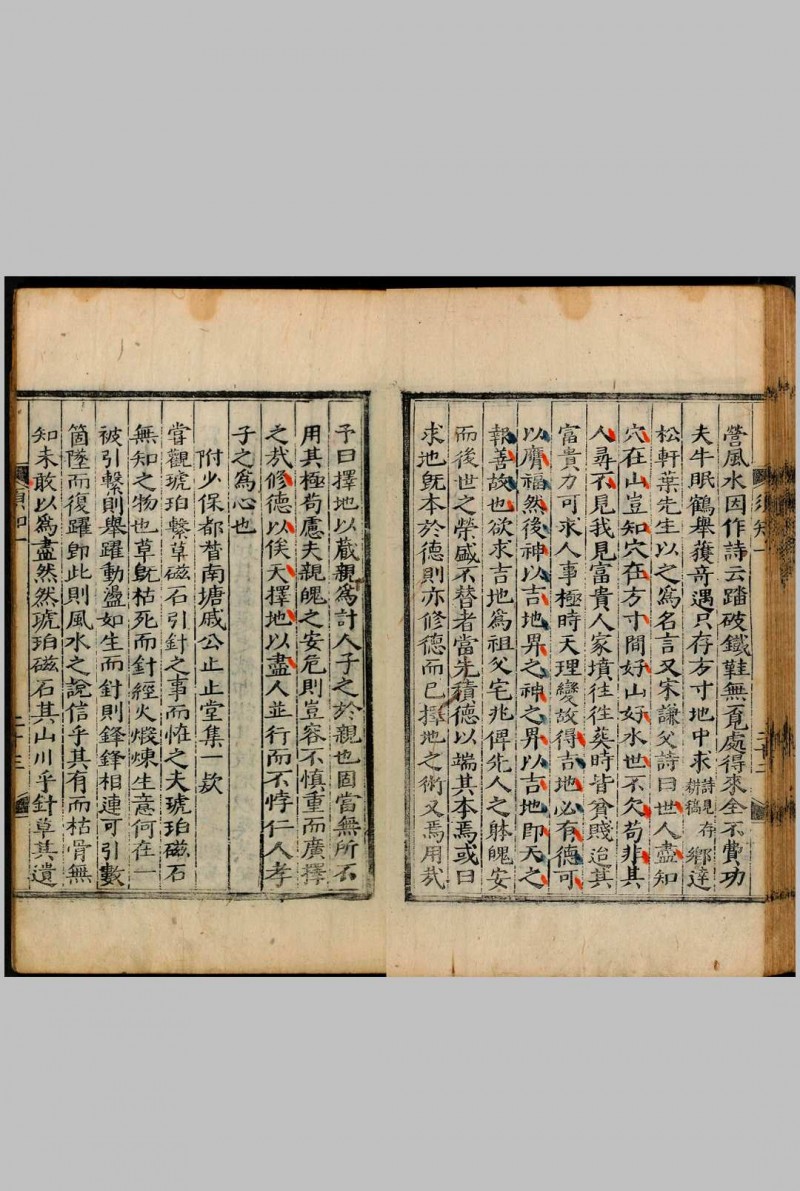 營風水因作詩云踏破鐵鞋無覓處得來全不費功
夫牛眠鶴舉獲奇遇只存方寸地中求詩見存耕稿鄉達
松軒葉先生以之爲名言又宋謙父詩曰世人盡知
穴在山豈知穴在方寸間好山好水世不欠苟非其
人尋不見我見富貴人家墳徃徃葵時皆貧賤迨其
富貴力可求人事極時天理變故得吉地必有德可
以膺福然後神以吉地畀之神之畀以吉地即天之
報善故也欲求吉地爲祖父宅兆俾先人之躰魄安
而後世之榮盛不替者當先積德以端其本焉或曰
求地旣本於德則亦修德而已擇地之術又焉用㢤
予曰擇地以藏親爲計人子之於親也固當無所不
用其極苟慮夫親魄之安危則豈容不慎重而廣擇
之㢤修德以俟天擇地以盡人並行而不悖仁人孝
子之爲心也
附少保都督南塘戚公止止堂集一款
嘗觀琥珀繫草磁石引針之事而恠之夫琥珀磁石
無知之物也草旣枯死而針經火煅煉生意何在一
被引繫則舉躍動盪如生而針則鋒鋒相連可引數
箇墜而復躍卽此則風水之說信乎其有而枯骨無
知未敢以爲盡然然琥珀磁石其山川乎針草其遺
須知一
二十二
須知一
二十三